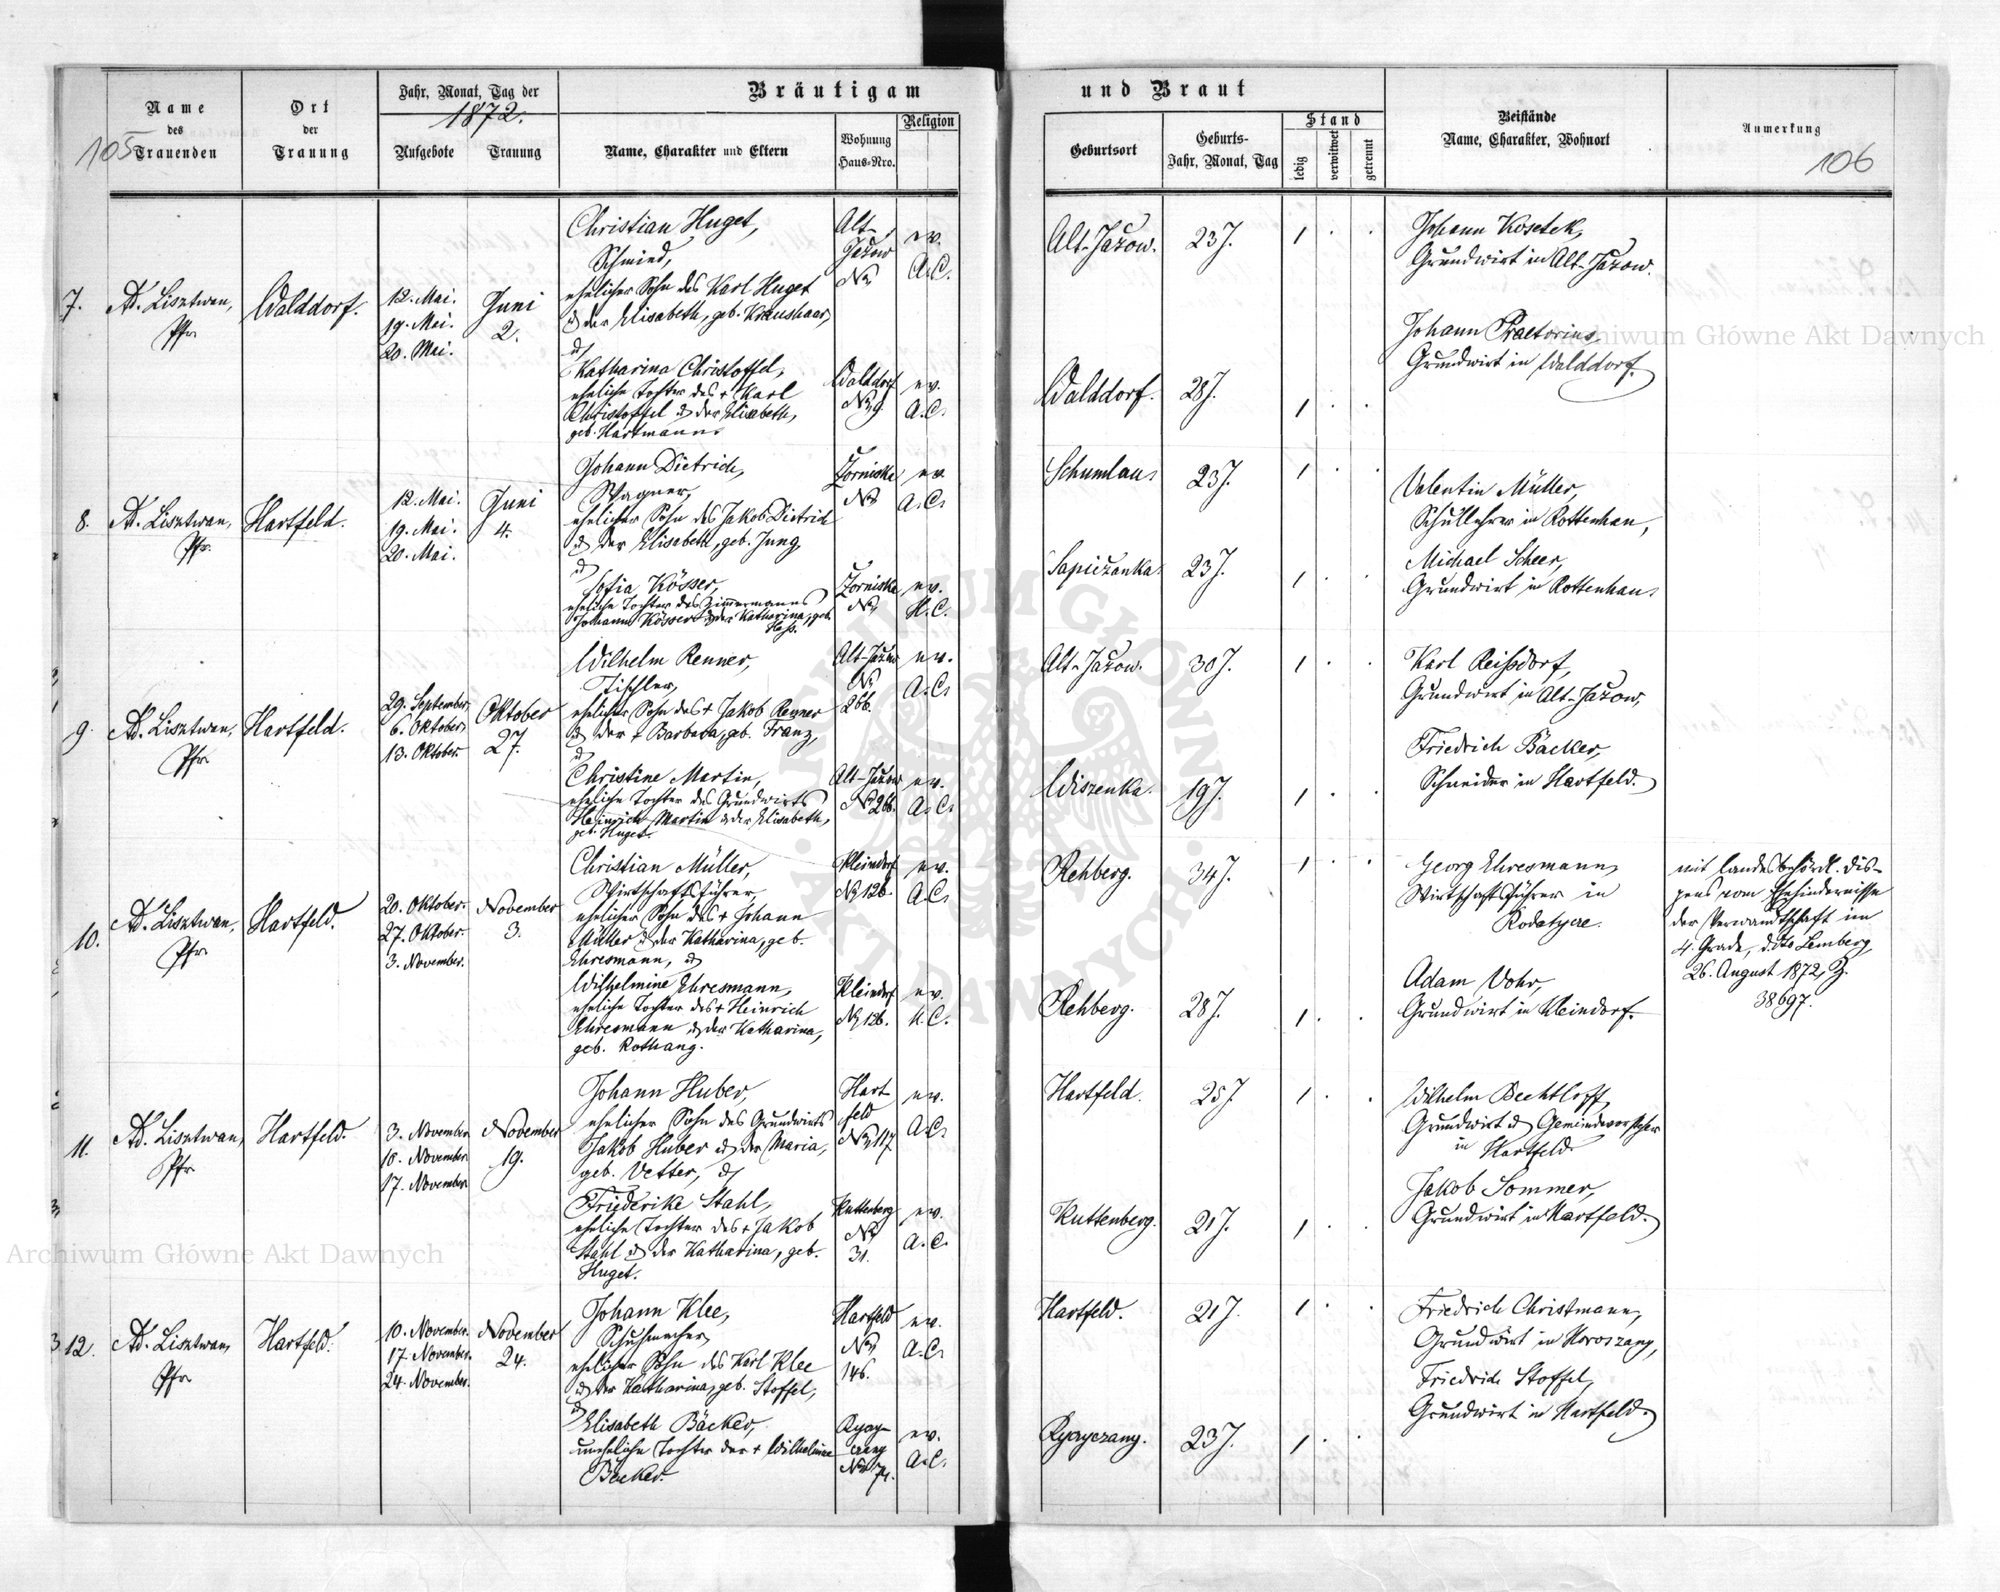 Bräutigam und Braut
Name des Trauenden
Ort der Trauung
Jahr, Monat, Tag der
1872.
Aufgebote
Trauung
Name, Charakter und Eltern
Wohnung Haus-Nro.
Religion
Geburtsort
Geburts-Jahr, Monat, Tag
Stand
ledig
verwitwet
getrennt
Beistände
Name, Charakter, Wohnort
Anmerkung
105
106
7.
Ad. Lisztwan,
Pfr.
Walddorf.
12. Mai.
19. Mai.
20. Mai.
Juni
2.
Christian Huget,
Schmied,
ehelicher Sohn des Karl Huget
u. der Elisabeth, geb. Kraushaar,
u.
Katharina Christoffel,
eheliche Tochter des + Karl
Christoffel u. der Elisabeth,
geb. Hartmann.
Alt-
Jazow
ev.
A.C.
Walddorf
No 9.
ev.
A.C.
Alt-Jazow.
23 J.
1
Walddorf.
28 J.
1
Johann Kosetek,
Grundwirt in Alt-Jazow.
Johann Praetorius,
Grundwirt in Walddorf.
8.
Ad. Lisztwan,
Pfr.
Hartfeld.
12. Mai.
19. Mai.
20. Mai.
Juni
4.
Johann Dietrich,
Wagner,
ehelicher Sohn des Jakob Dietrich
u. der Elisabeth, geb. Jung,
u.
Sofia Kösser,
eheliche Tochter des Zimmermanns
Johann Kösser u. der Katharina, geb.
Hass.
Zorniska
No
ev.
A.C.
Zorniska
No
ev.
H.C.
Schumlau
23 J.
1
Sapiezanka.
23 J.
1
Valentin Müller,
Schullehrer in Rottenhan,
Michael Scheer,
Grundwirt in Rottenhan.
9.
Ad. Lisztwan,
Pfr.
Hartfeld.
29. September,
6. Oktober,
13. Oktober.
Oktober
27.
Wilhelm Renner,
Tischler,
ehelicher Sohn des + Jakob Renner
u. der + Barbara, geb. Franz,
u.
Christine Martin,
eheliche Tochter des Grundwirts
Heinrich Martin u. der Elisabeth,
geb. Huget.
Alt-Jazow
No
266.
ev.
A.C.
Alt-Jazow
No 266.
ev.
A.C.
Alt-Jazow.
30 J.
1
Wiszenka.
19 J.
1
Karl Reissdorf,
Grundwirt in Alt-Jazow,
Friedrich Bäcker,
Schneider in Hartfeld.
10.
Ad. Lisztwan,
Pfr.
Hartfeld.
20. Oktober.
27. Oktober.
3. November.
November
3.
Christian Müller,
Wirtschaftsführer,
ehelicher Sohn des + Johann
Müller u. der Katharina, geb.
Ehresmann, u.
Wilhelmine Ehresmann,
eheliche Tochter des + Heinrich
Ehresmann u. der Katharina,
geb. Rothang.
Kleindorf
No 126.
ev.
A.C.
Kleindorf
No 126.
ev.
H.C.
Rehberg.
34 J.
1
Rehberg.
28 J.
1
Georg Ehresmann,
Wirtschaftsführer in
Rodatycze.
Adam Vohr,
Grundwirt in Kleindorf.
mit landesbehördl. Dis-
pens vom Ehehindernisse
der Verwandtschaft im
4. Grade, ddto Lemberg,
26. August 1872, Z.
38697.
11.
Ad. Lisztwan,
Pfr.
Hartfeld.
3. November.
10. November.
17. November.
November
19.
Johann Huber,
ehelicher Sohn des Grundwirts
Jakob Huber u. der Maria,
geb. Vetter, u.
Friederike Stahl,
eheliche Tochter des + Jakob
Stahl u. der Katharina, geb.
Huget.
Hart
feld
No 117.
ev.
A.C.
Kuttenberg
No
31.
ev.
A.C.
Hartfeld.
25 J.
1
Kuttenberg.
21 J.
1
Wilhelm Bechtloff,
Grundwirt u. Gemeindevorsteher
in Hartfeld.
Jakob Sommer,
Grundwirt in Hartfeld.
12.
Ad. Lisztwan,
Pfr.
Hartfeld.
10. November.
17. November.
24. November.
November
24.
Johann Klee,
Schuhmacher,
ehelicher Sohn des Karl Klee
u. der Katharina, geb. Stoffel,
u.
Elisabeth Bäcker,
uneheliche Tochter der + Wilhelmine
Bäcker.
Hartfeld
No
146.
ev.
A.C.
ev.
A.C.
Hartfeld.
21 J.
1
23 J.
1
Friedrich Christmann,
Grundwirt in Moroszany,
Friedrich Stoffel,
Grundwirt in Hartfeld.
Archiwum Główne Akt Dawnych
Archiwum Główne Akt Dawnych
ARCHIWUM GŁÓWNE AKT DAWNYCH